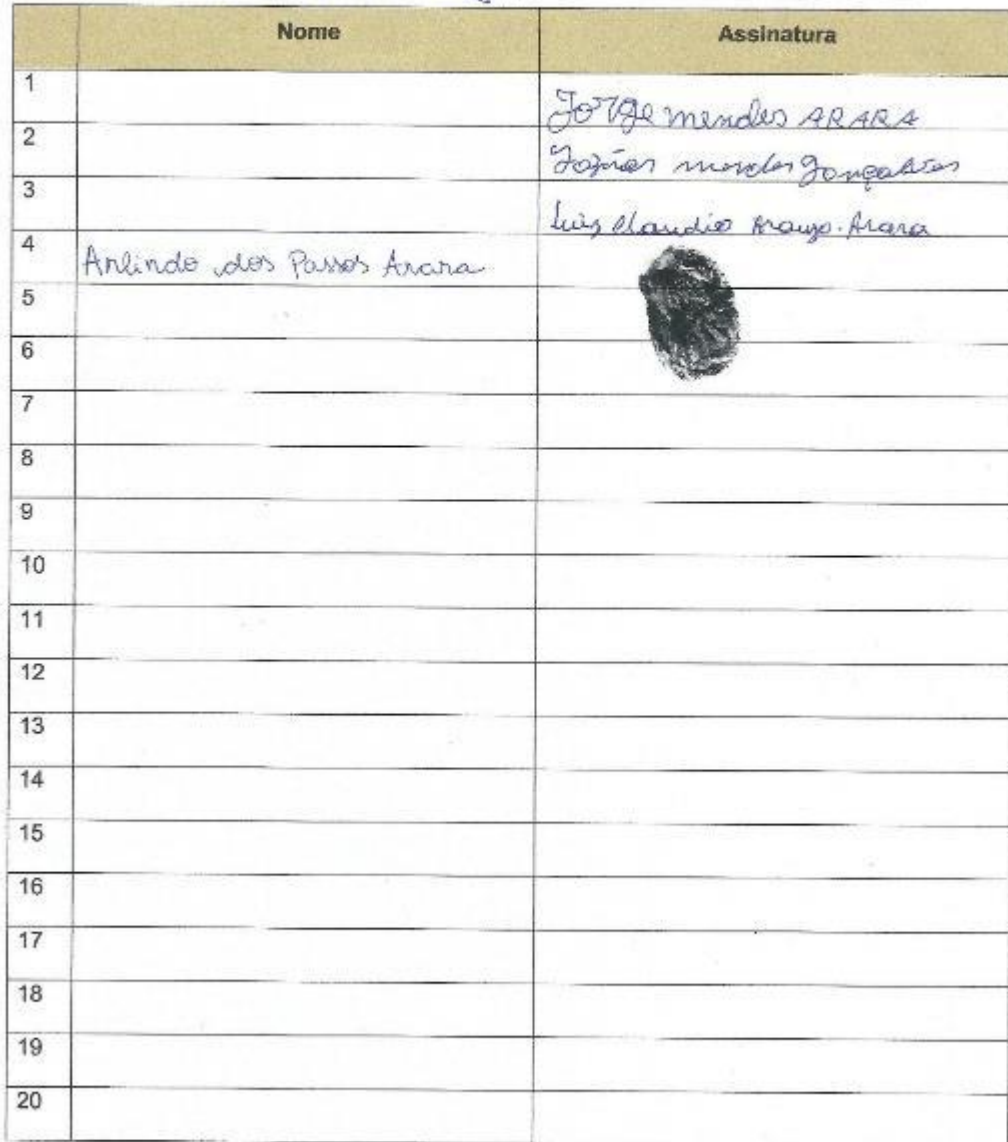 Nome Assinatura
1 Jorge mendes ARARA
2 mendes Gonçalves
3 Luiz Claudio Araujo Arara
4 Arlindo dos Passos Arara
5
6
7
8
9
10
11
12
13
14
15
16
17
18
19
20